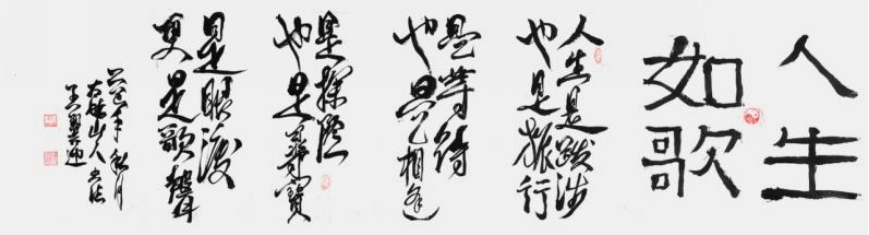 人生
如歌
人生是跋涉
也是旅行
是等待
也是相逢
是探險
也是尋寶
是眼淚
更是歌聲
年秋月
山人書法